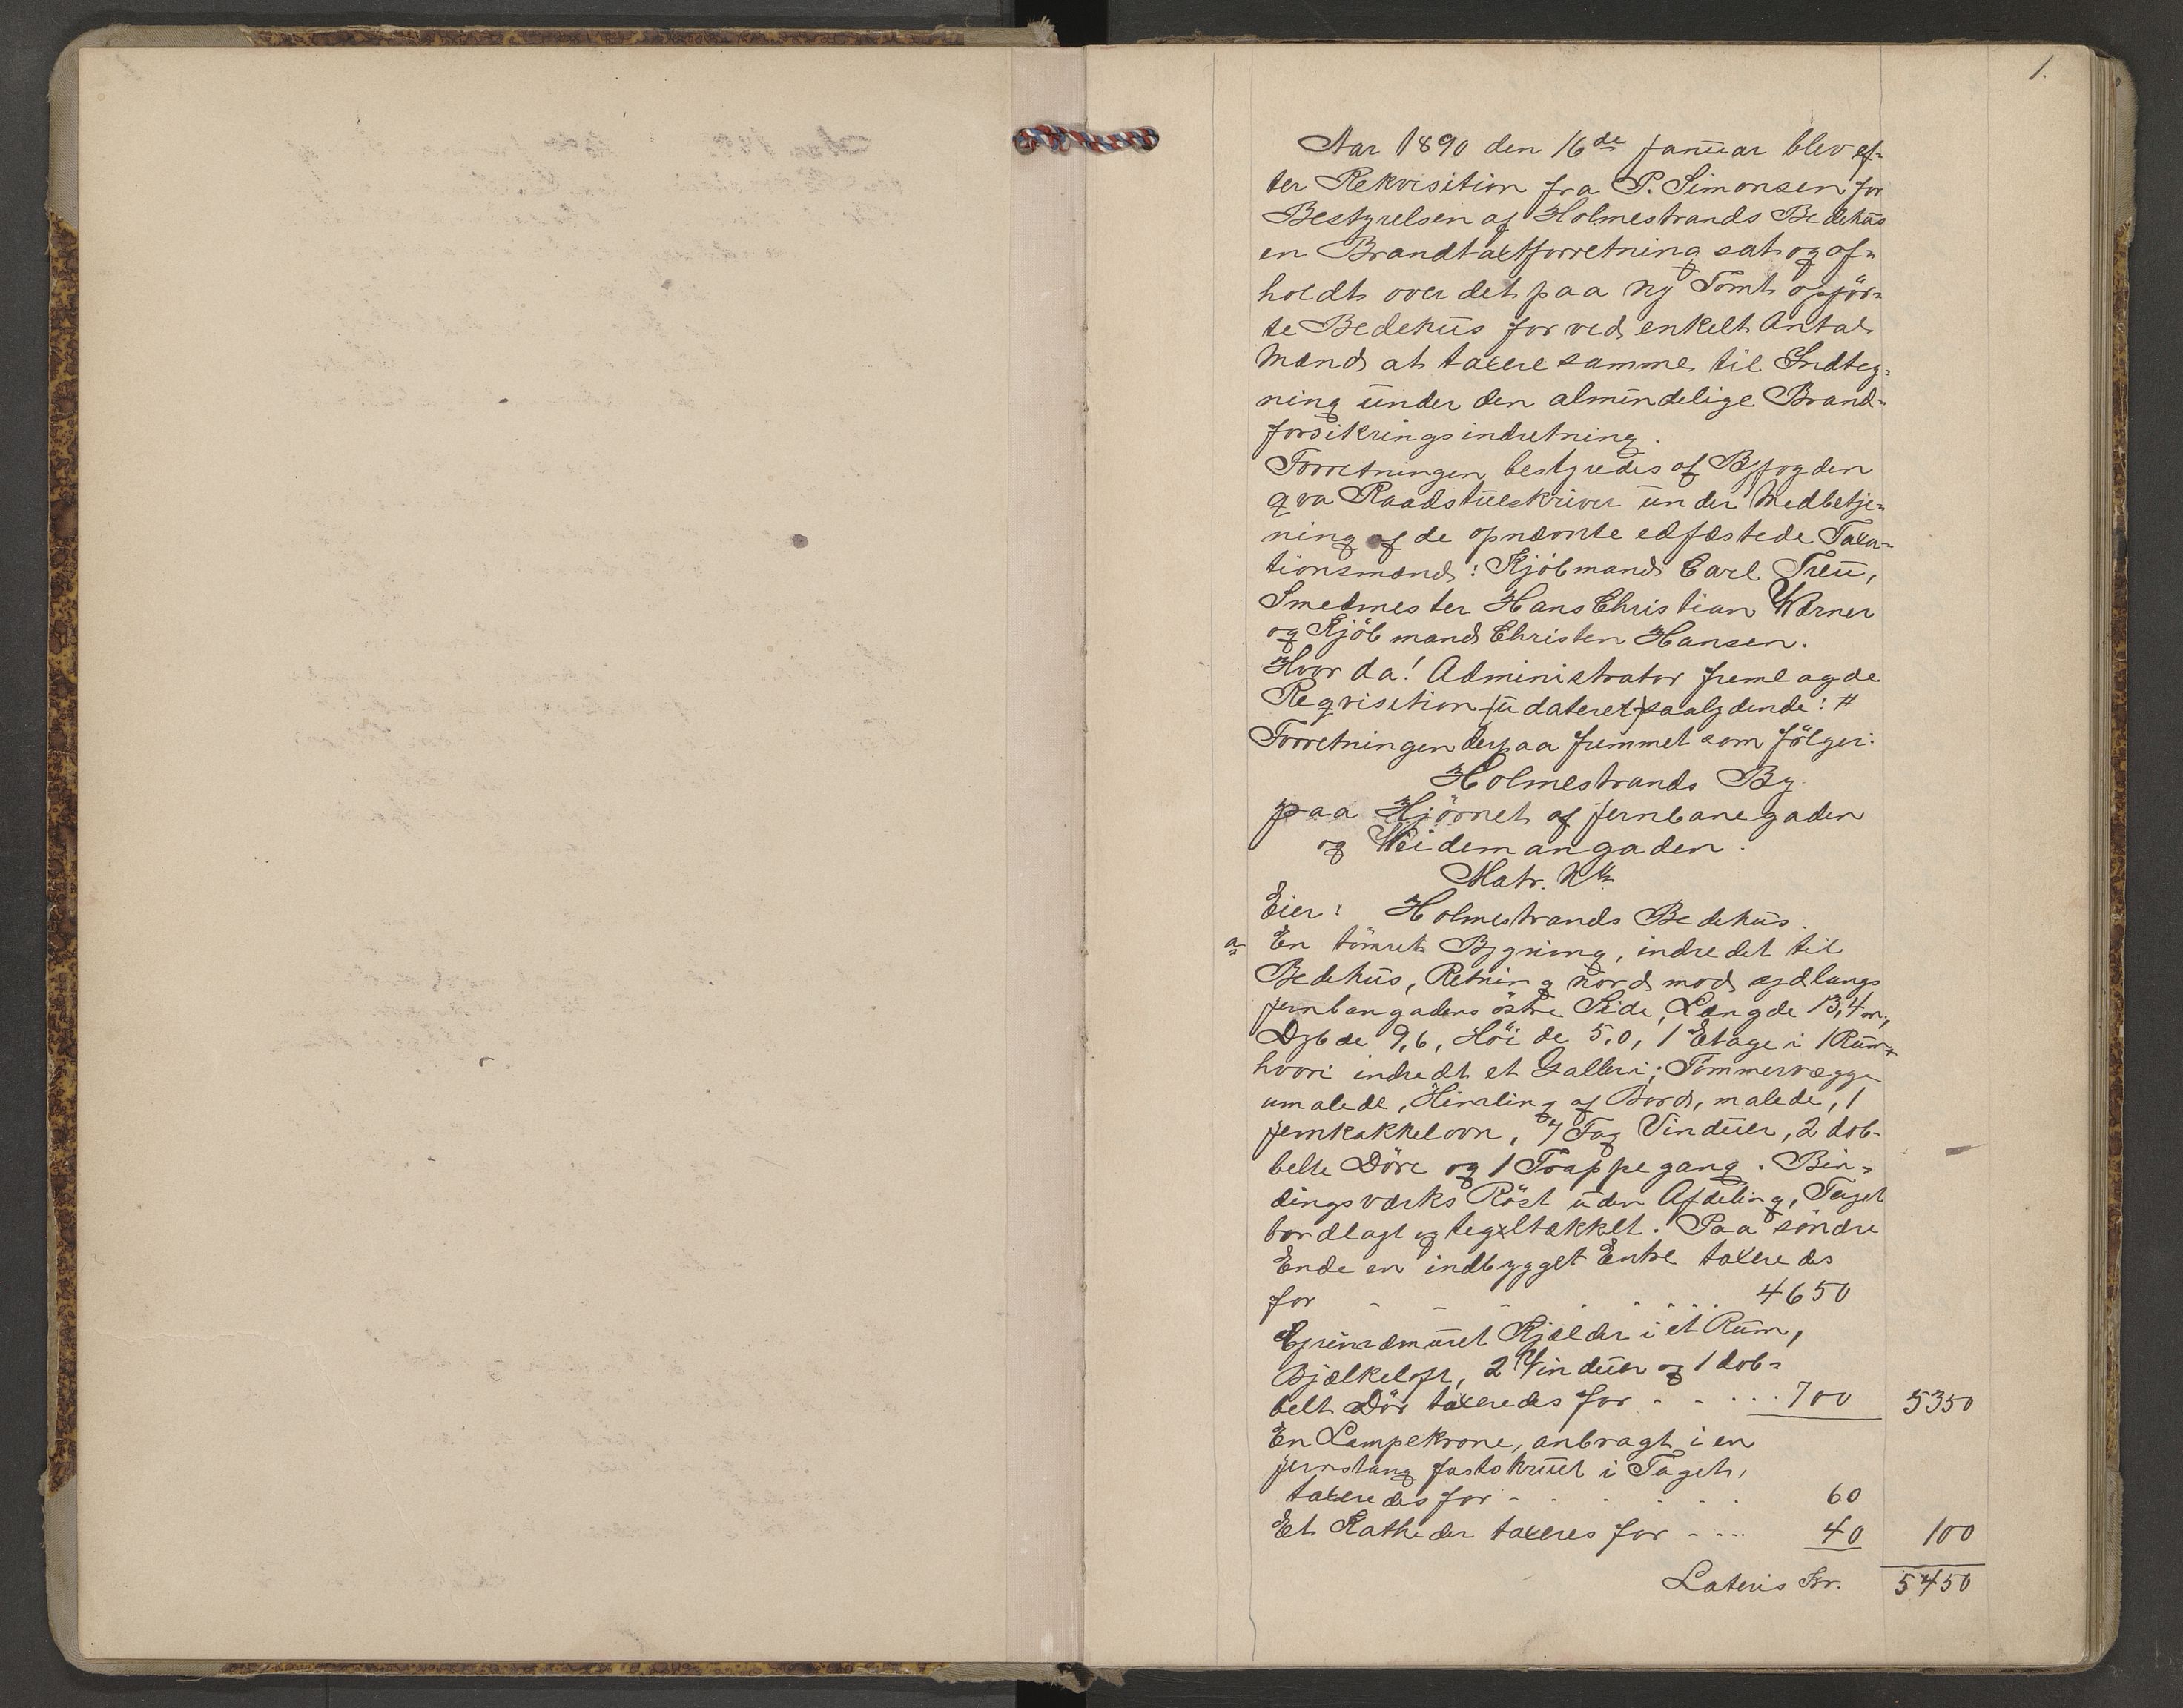 1.
Aar 1890 den 16de Januar blev ef-
ter Rekvisition fra P. Simonsen for
Bestyrelsen af Holmestrands Bedehus
en Brandtaxtforretning sat og af-
holdt over det paa ny Tomt opför-
te Bedehus for ved enkelt Antal
Mænd at taxere samme til Indteg-
ning under den almindelige Brand-
forsikringsindretning.
Forretningen bestyredes af Byfogden
qva Raadstueskriver under Medbetje-
ning af de opnævnte edfæstede Taxa-
tionsmænd: Kjöbmand Carl Treu,
Smedmester Hans Christian Wærner
og Kjöbmand Christen Hansen.
Hvor da! Administrator fremlagde
Reqvisition (udateret) saalydende: #
Forretningen derpaa fremmet som fölger:
Holmestrands By
paa Hjörnet af Jernbanegaden
og Weidemangaden.
Matr. No
Eier: Holmestrands Bedehus.
a En tömret Bygning, indredet til
Bedehus, Retning nord mod syd langs
Jernbangadens östre Side, Længde 13,4 m,
Dybde 9,6, Höide 5,0, 1 Etage i 1 Rum
hvori indredt et Galleri; Tömmervægge
umalede, Himling af Bord, malede, 1
Jernkakkelovn, 7 Fag Vinduer, 2 dob-
belte Döre og 1 Trappegang. Bin-
dingsværks Röst uden Afdeling, Taget
bordlagt og tegltækket. Paa söndre
Ende en indbygget Entre taxeredes
for - - - . . . . . 4650
Grundmuret Kjælder i et Rum,
Bjælkeloft, 2 Vinduer og 1 dob-
belt Dör taxeredes for - - . . . 700 5350
En Lampekrone, anbragt i en
Jernstang fastskruet i Taget,
taxeredes for - . . . . . 60
Et Katheder taxeres for - - . . 40 100
Lateris Kr. 5450